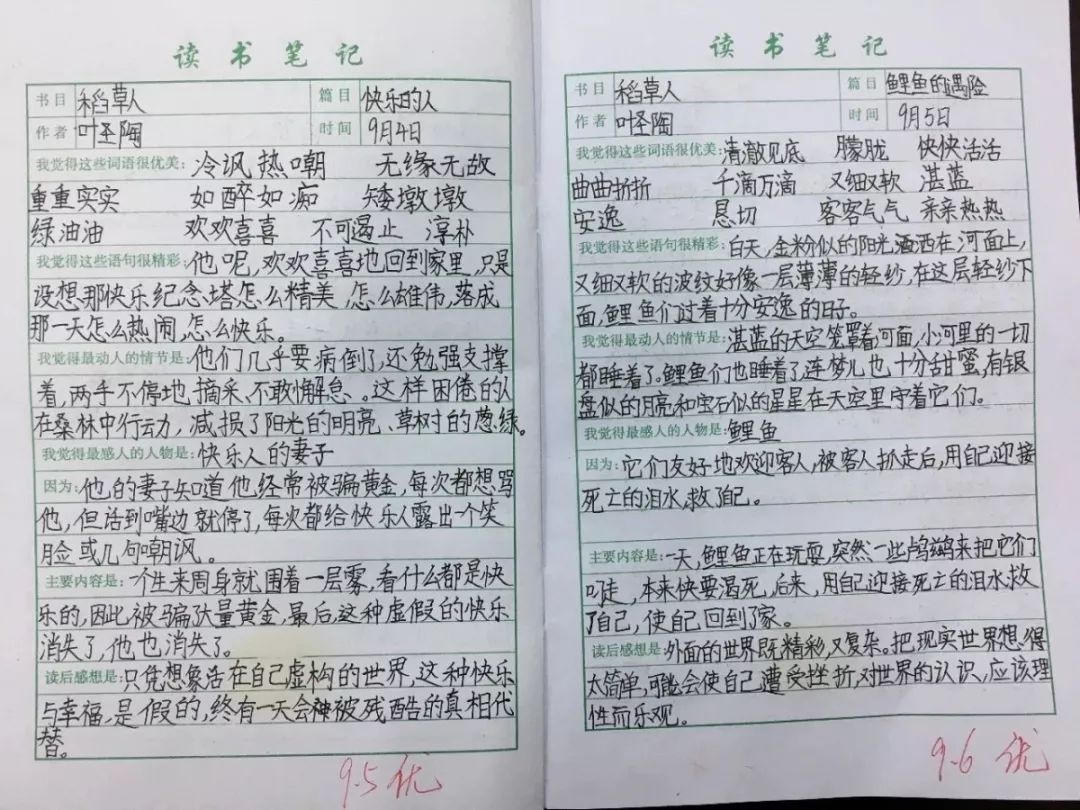 读书笔记
书目 稻草人 篇目 快乐的人
作者 叶圣陶 时间 9月4日
我觉得这些词语很优美: 冷讽热嘲 无缘无故
重重实实 如醉如痴 矮墩墩
绿油油 欢欢喜喜 不可遏止 淳朴
我觉得这些语句很精彩: 他呢,欢欢喜喜地回到家里,只是
设想那快乐纪念塔怎么精美,怎么雄伟,落成
那一天怎么热闹,怎么快乐。
我觉得最动人的情节是: 他们几乎要病倒了,还勉强支撑
着,两手不停地摘采、不敢懈怠、。这样困倦的人
在桑林中行动,减损了阳光的明亮、草树的葱绿。
我觉得最感人的人物是: 快乐人的妻子
因为: 他的妻子知道他经常被骗黄金,每次都想骂
他,但话到嘴边就停了,每次都给快乐人露出一个笑
脸或几句嘲讽。
主要内容是: 一个生来周身就围着一层雾,看什么都是快
乐的,因此被骗大量黄金,最后,这种虚假的快乐
消失了,他也消失了。
读后感想是: 只凭想象活在自己虚构的世界,这种快乐
与幸福,是假的,终有一天会被残酷的真相代
替。
9.5 优
读书笔记
书目 稻草人 篇目 鲤鱼的遇险
作者 叶圣陶 时间 9月5日
我觉得这些词语很优美: 清澈见底 朦胧 快快活活
曲曲折折 千滴万滴 又细又软 湛蓝
安逸 恳切 客客气气 亲亲热热
我觉得这些语句很精彩: 白天,金粉似的阳光洒在河面上,
又细又软的波纹好像一层薄薄的轻纱,在这层轻纱下
面,鲤鱼们过着十分安逸的日子。
我觉得最动人的情节是: 湛蓝的天空笼罩着河面,小河里的一切
都睡着了。鲤鱼们也睡着了,连梦儿也十分甜蜜,有银
盘似的月亮和宝石似的星星在天空里守着它们。
我觉得最感人的人物是: 鲤鱼
因为: 它们友好地欢迎客人,被客人扒走后,用自己迎接
死亡的泪水,救了自己。
主要内容是: 一天,鲤鱼正在玩耍,突然一些鸬鹚来把它们
叼走,本来快要渴死,后来,用自己迎接死亡的泪水,救
了自己,使自己回到了家。
读后感想是: 外面的世界既精彩,又复杂。把现实世界想得
太简单,可能会使自己遭受挫折,对世界的认识,应该理
性而乐观。
9.6 优